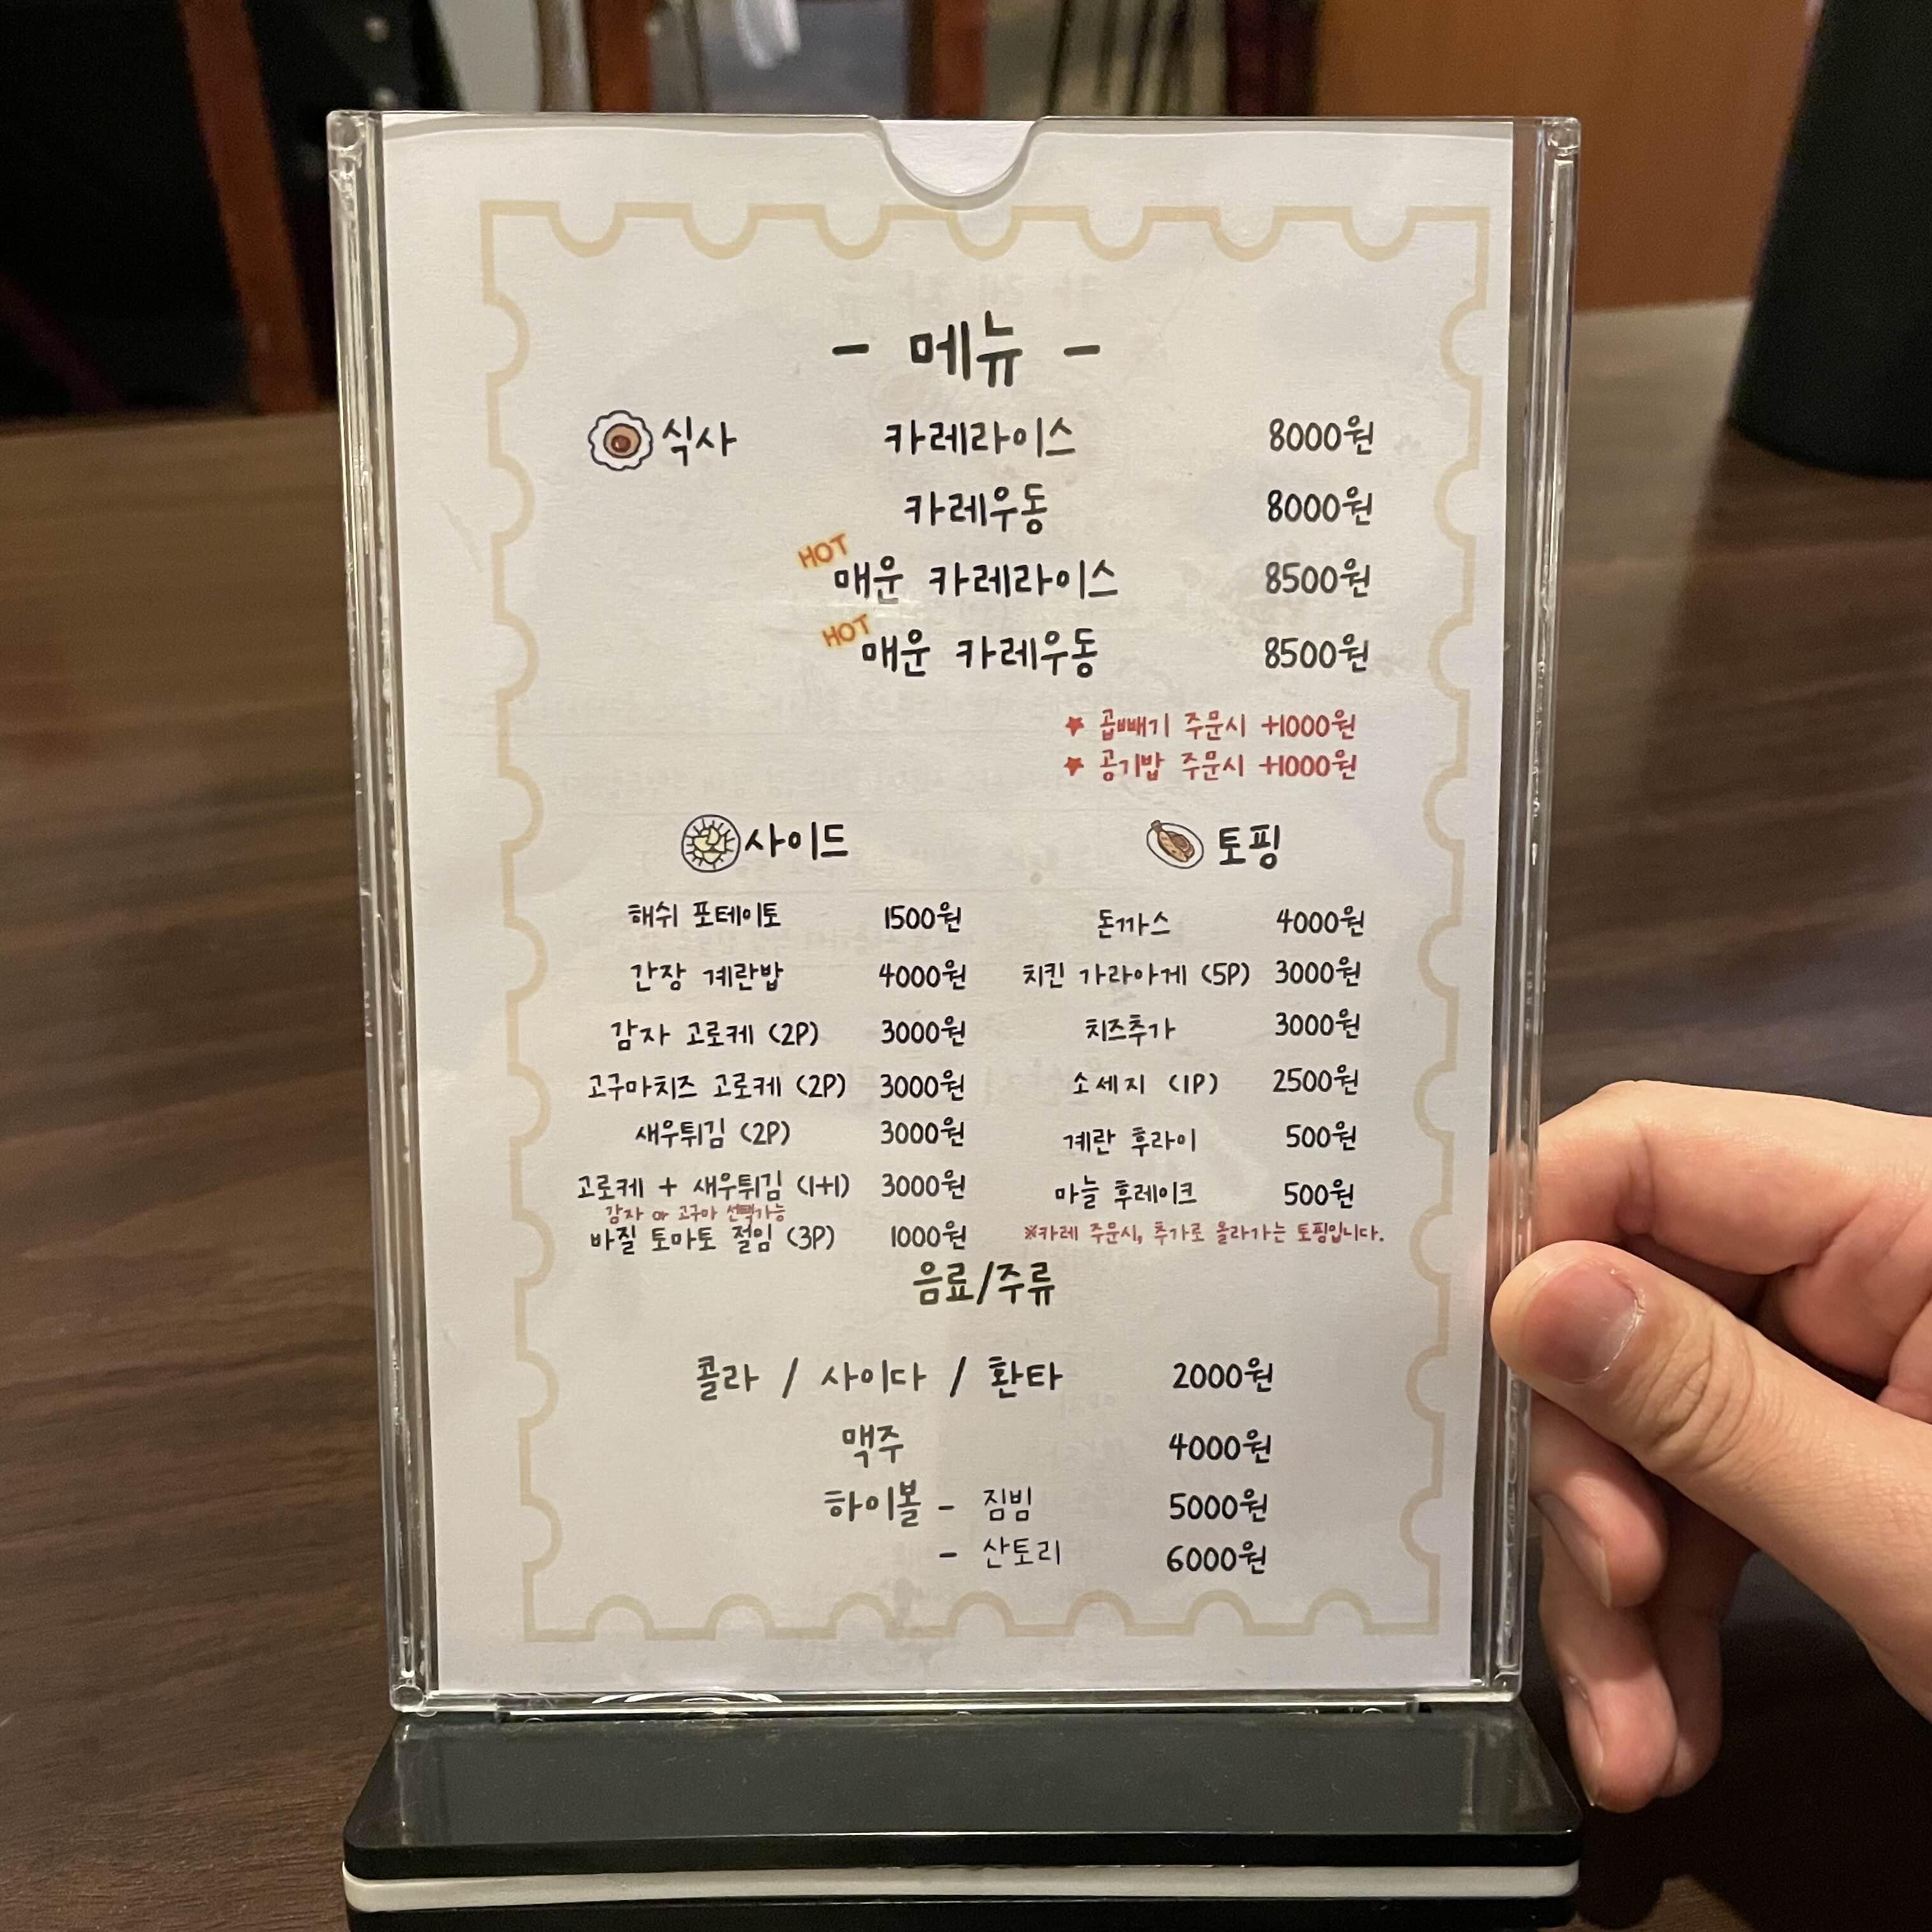 - 메뉴 -
식사 카레라이스 8000원
카레우동 8000원
HOT 매운 카레라이스 8500원
HOT 매운 카레우동 8500원
★ 곱빼기 주문시 +1000원
★ 공기밥 주문시 +1000원
사이드
해쉬 포테이토 1500원
간장 계란밥 4000원
감자 고로케 (2P) 3000원
고구마치즈 고로케 (2P) 3000원
새우튀김 (2P) 3000원
고로케 + 새우튀김 (1+1) 3000원
감자 or 고구마 선택가능
바질 토마토 절임 (3P) 1000원
토핑
돈까스 4000원
치킨 가라아게 (5P) 3000원
치즈추가 3000원
소세지 (1P) 2500원
계란 후라이 500원
마늘 후레이크 500원
※카레 주문시, 추가로 올라가는 토핑입니다.
음료/주류
콜라 / 사이다 / 환타 2000원
맥주 4000원
하이볼 - 짐빔 5000원
- 산토리 6000원